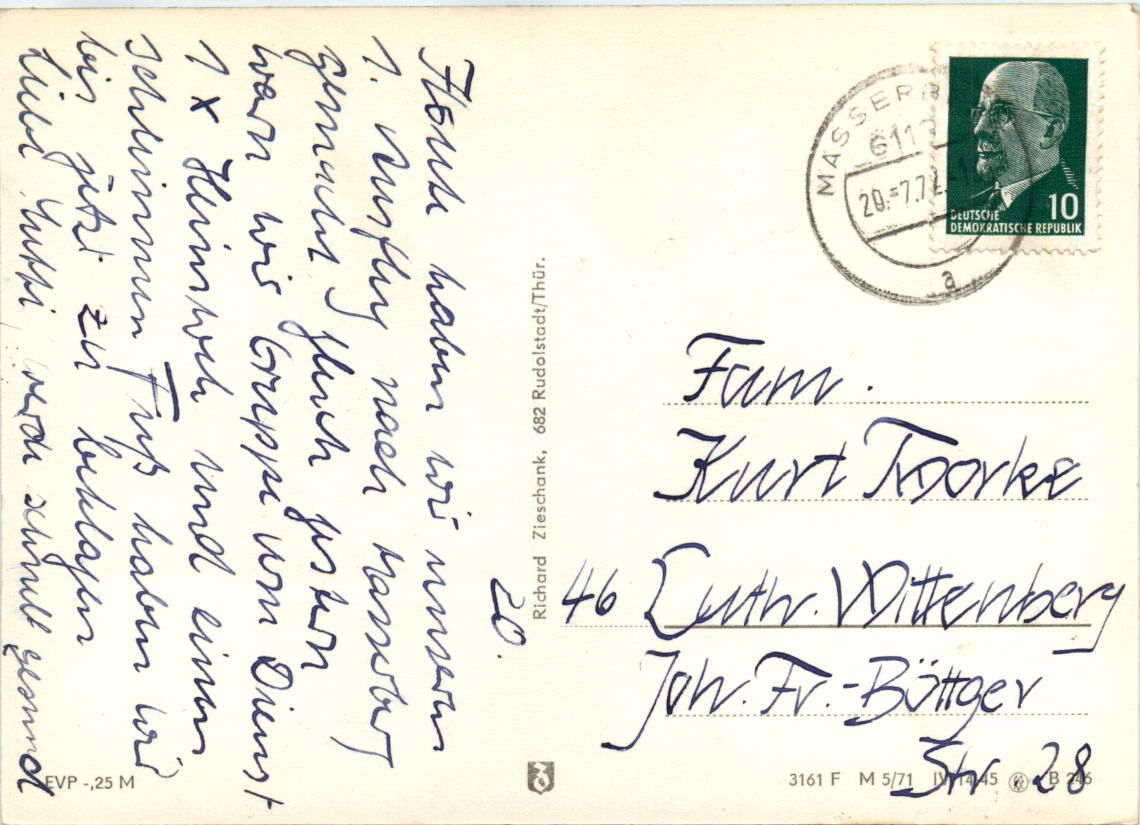 Heute haben wir unseren
1. Ausflug nach Masserb.
gemacht gleich gestern
waren wir Gruppe vom Dienst
1 x Heimweh und einen
schlimmen Fuß haben wir
bis jetzt zu beklagen
Liebe Mutti, werde schnell gesund
20.
Richard Zieschank, 682 Rudolstadt/Thür.
MASSERB
611
20.-7.72
a
10
DEUTSCHE
DEMOKRATISCHE REPUBLIK
Fam.
Kurt
46 Luth. Wittenberg
Joh. Fr.-Böttger
Str. 28
EVP -,25 M
3161 F M 5/71 IV/14/45 B 246